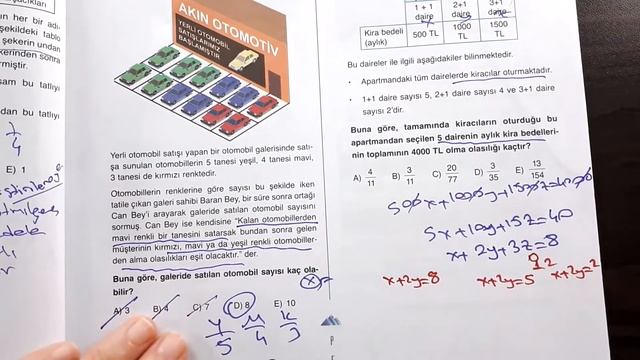 ın her bir adı-
şekildeki tablo
şekerin undan
kerinden sonra
rmiştir.
sam bu tatlıyı
dan bu tatlıyı
E) 1
AKIN OTOMOTİV
YERLİ OTOMOBİL
SATIŞLARIMIZ
BAŞLAMIŞTIR
Yerli otomobil satışı yapan bir otomobil galerisinde satı-
şa sunulan otomobillerin 5 tanesi yeşil, 4 tanesi mavi,
3 tanesi de kırmızı renktedir.
Otomobillerin renklerine göre sayısı bu şekilde iken
tatile çıkan galeri sahibi Baran Bey, bir süre sonra ortağı
Can Bey'i arayarak galeride satılan otomobil sayısını
sormuş. Can Bey ise kendisine "Kalan otomobillerden
mavi renkli bir tanesini satarsak bundan sonra gelen
müşterinin kırmızı, mavi ya da yeşil renkli otomobiller-
den alma olasılıkları eşit olacaktır." der.
Buna göre, galeride satılan otomobil sayısı kaç ola-
bilir?
A) 3 B) 4 C) 7 D) 8 E) 10
Y M K
5 4 3
1 + 1 daire 2+1 daire 3+1 daire
Kira bedeli (aylık) 500 TL 1000 TL 1500 TL
Bu daireler ile ilgili aşağıdakiler bilinmektedir.
• Apartmandaki tüm dairelerde kiracılar oturmaktadır.
• 1+1 daire sayısı 5, 2+1 daire sayısı 4 ve 3+1 daire
sayısı 2'dir.
Buna göre, tamamında kiracıların oturduğu bu
apartmandan seçilen 5 dairenin aylık kira bedelleri-
nin toplamının 4000 TL olma olasılığı kaçtır?
A) 4/11 B) 3/11 C) 20/77 D) 3/35 E) 13/154
500x+1000y+1500z=4000
5x+10y+15z=40
x+2y+3z=8
0 1 2
x+2y=8 x+2y=5 x+2y=2